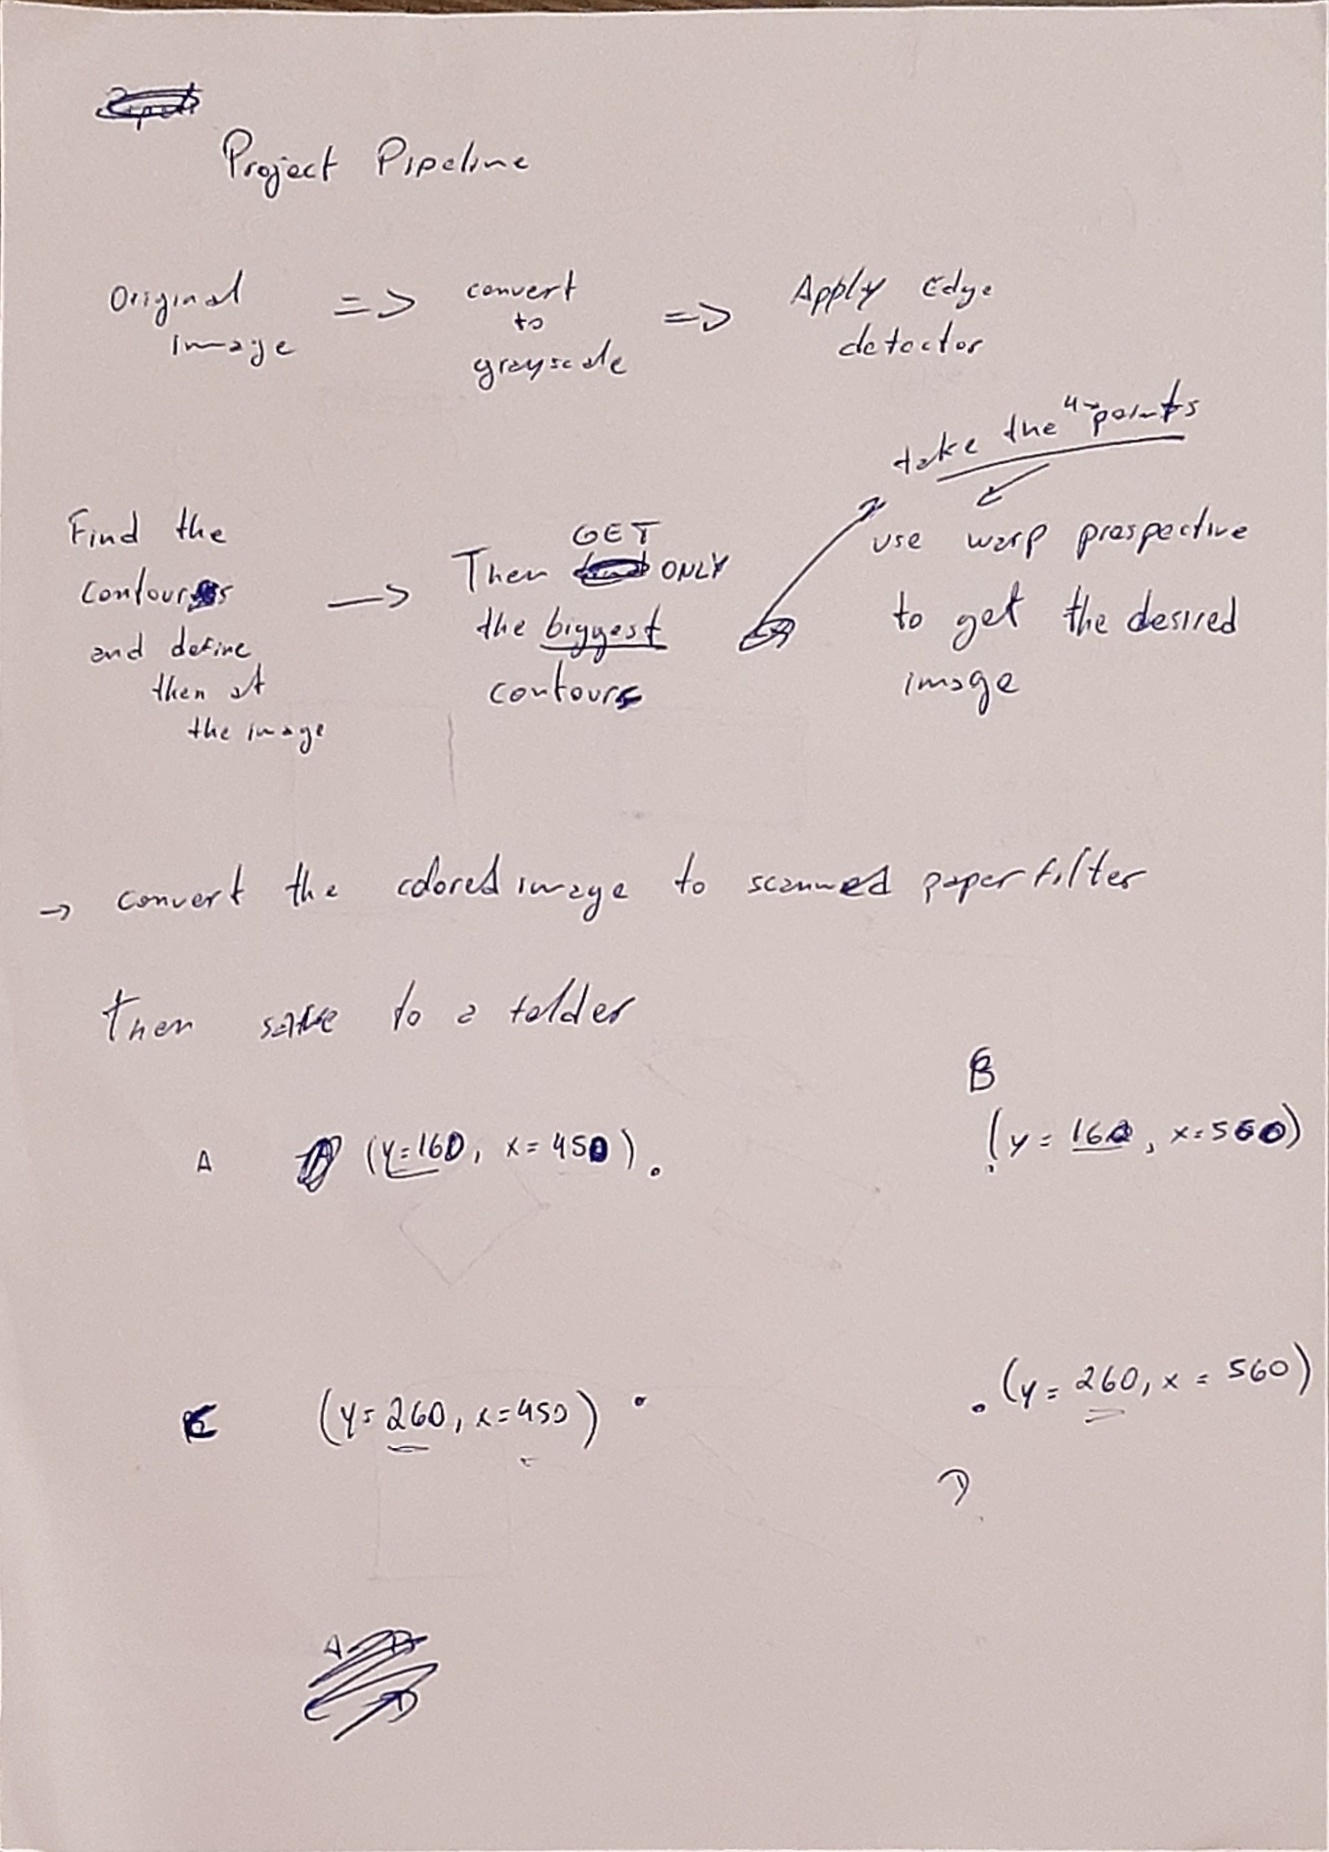 Project Pipeline
Original image => convert to grayscale => Apply Edge detector
Find the contours and define then at the image -> Then GET ONLY the biggest contour
take the 4 points
use warp prespective to get the desired image
-> convert the colored image to scanned paper filter
then save to a folder
A (y=160, x=450).
B (y=160, x=560)
C (y=260, x=450)
D (y=260, x=560)